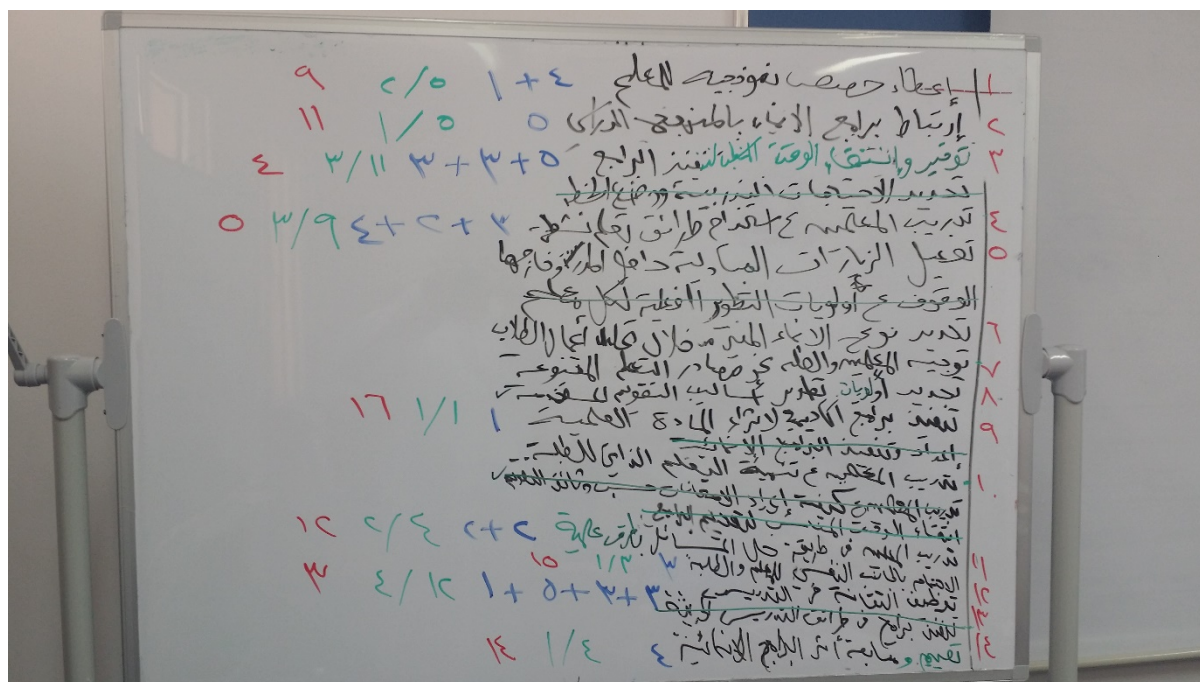 ١ إعطاء حصص نموذجية للمعلم ٤ + ١ ٥/٢ ٩
٢ إرتباط برامج الانماء بالمنهج الدراسي ٥ ٥/١ ١١
٣ توفير وإنتقاء الوقت لتنفيذ البرامج ٥ + ٣ + ٣ ١١/٣ ٤
تحديد الاحتياجات التدريبية ووضع الخطط
٤ تدريب المعلمين ع استخدام طرائق تعلم نشط ٣ + ٢ + ٤ ٩/٣ ٥
٥ تفعيل الزيارات المتبادلة داخل المدرسة وخارجها
الوقوف ع أولويات التطوير الفعلية لكل معلم
٦ تحديد نوع الانماء المهني من خلال تحليل أعمال الطلاب
٧ توجيه المعلمين والطلبة نحو مصادر التعلم المتنوعة
٨ تحديد أولويات تطوير أساليب التقويم المستخدمة
٩ تنفيذ برامج أكاديمية لإثراء المادة العلمية ١ ١/١ ١٦
إعداد وتنفيذ البرامج الانمائية
١٠ تدريب المعلمين ع تنمية التعلم الذاتي للطلبة
تدريب المعلمين كيفية إعداد الامتحانات حسب وثائق التقويم
انتقاء الوقت المناسب لتقديم البرامج
١١ تدريب المعلمين في طريقة حل المسائل بطرق علمية ٢+٢ ٤/٢ ١٢
١٢ الاهتمام بالجانب النفسي للمعلم والطلبة ٣ ٣/١ ١٥
توظيف التقانة في التدريس ٣ + ٣ + ٥ + ١ ١٢/٤ ٣
تنفيذ برامج في طرائق التدريس الحديثة
١٤ تقييم ومتابعة أثر البرامج الإنمائية ٤ ٤/١ ١٤